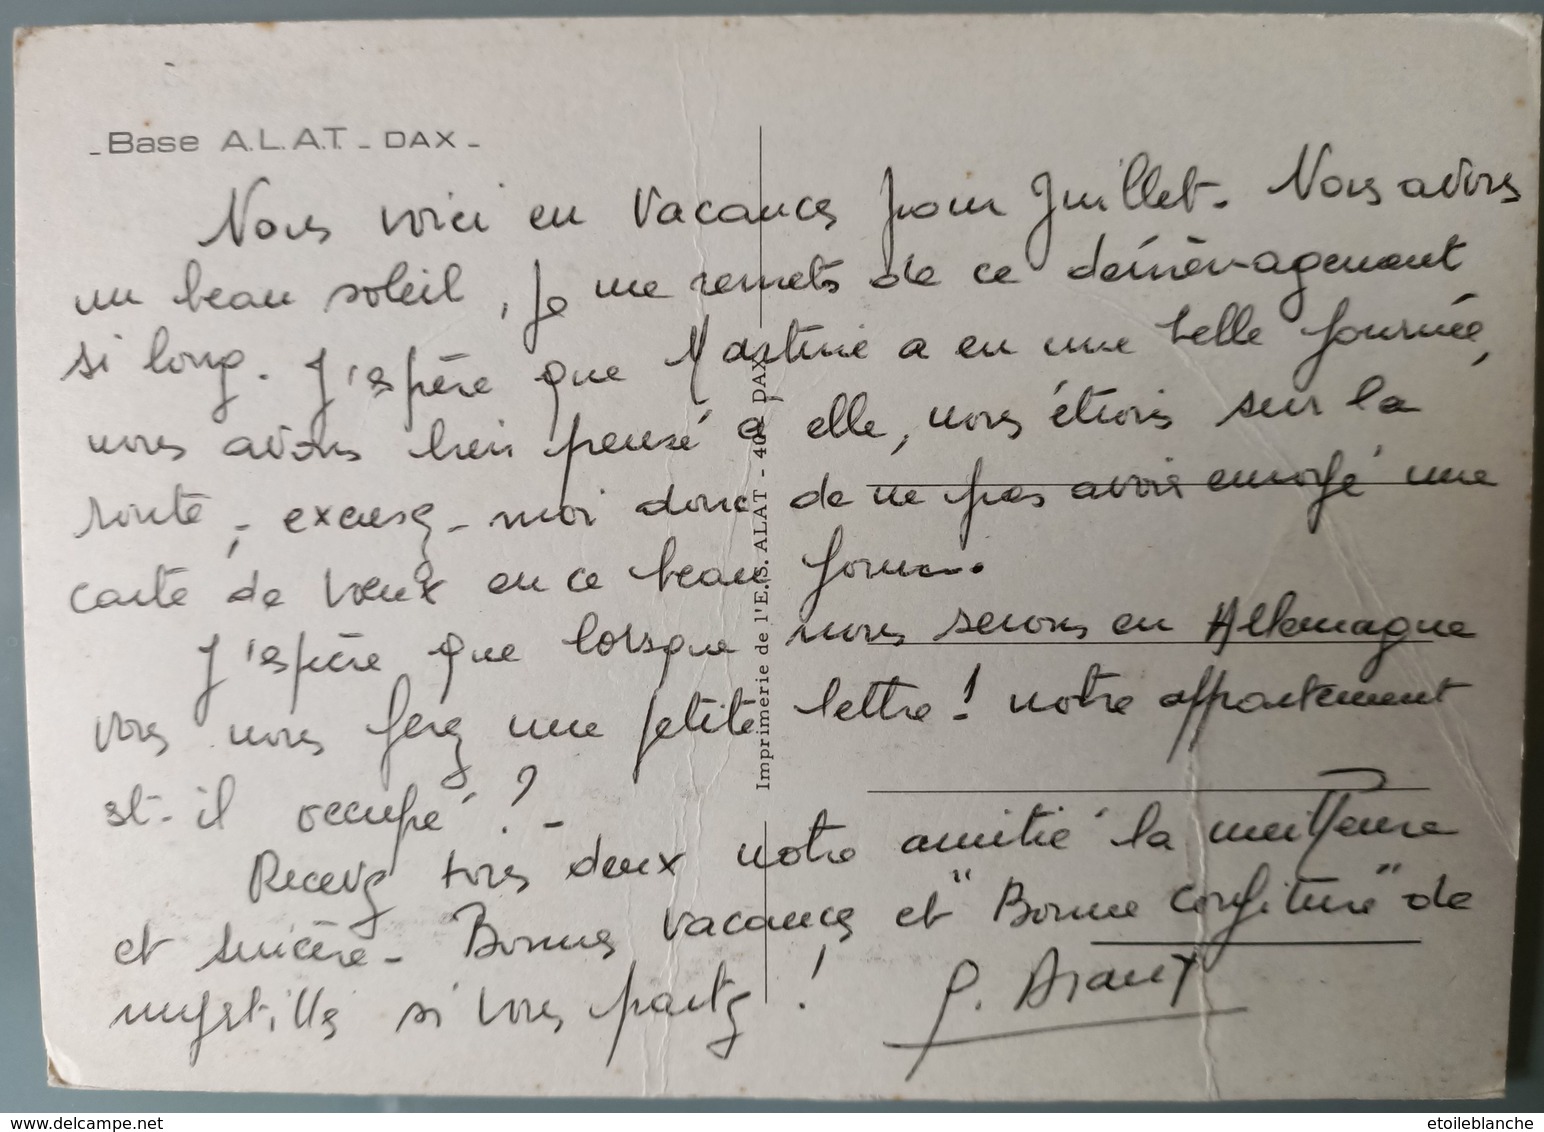 - Base A.L.A.T. - DAX -
Nous voici en vacances pour Juillet. Nous avons
un beau soleil, je me remets de ce déménagement
si long. J'espère que Martine a eu une belle journée,
nous avons bien pensé à elle, nous étions sur la
route, excusez-moi donc de ne pas avoir envoyé une
carte de voeux en ce beau jour.
J'espère que lorsque nous serons en Allemagne
vous nous ferez une petite lettre! notre appartement
est-il occupé? -
Recevez tous deux notre amitié la meilleure
et sincère - Bonnes vacances et "Bonne confiture" de
myrtilles si vous partez!
Imprimerie de l'E.S. ALAT - 40 - DAX
etoileblanche